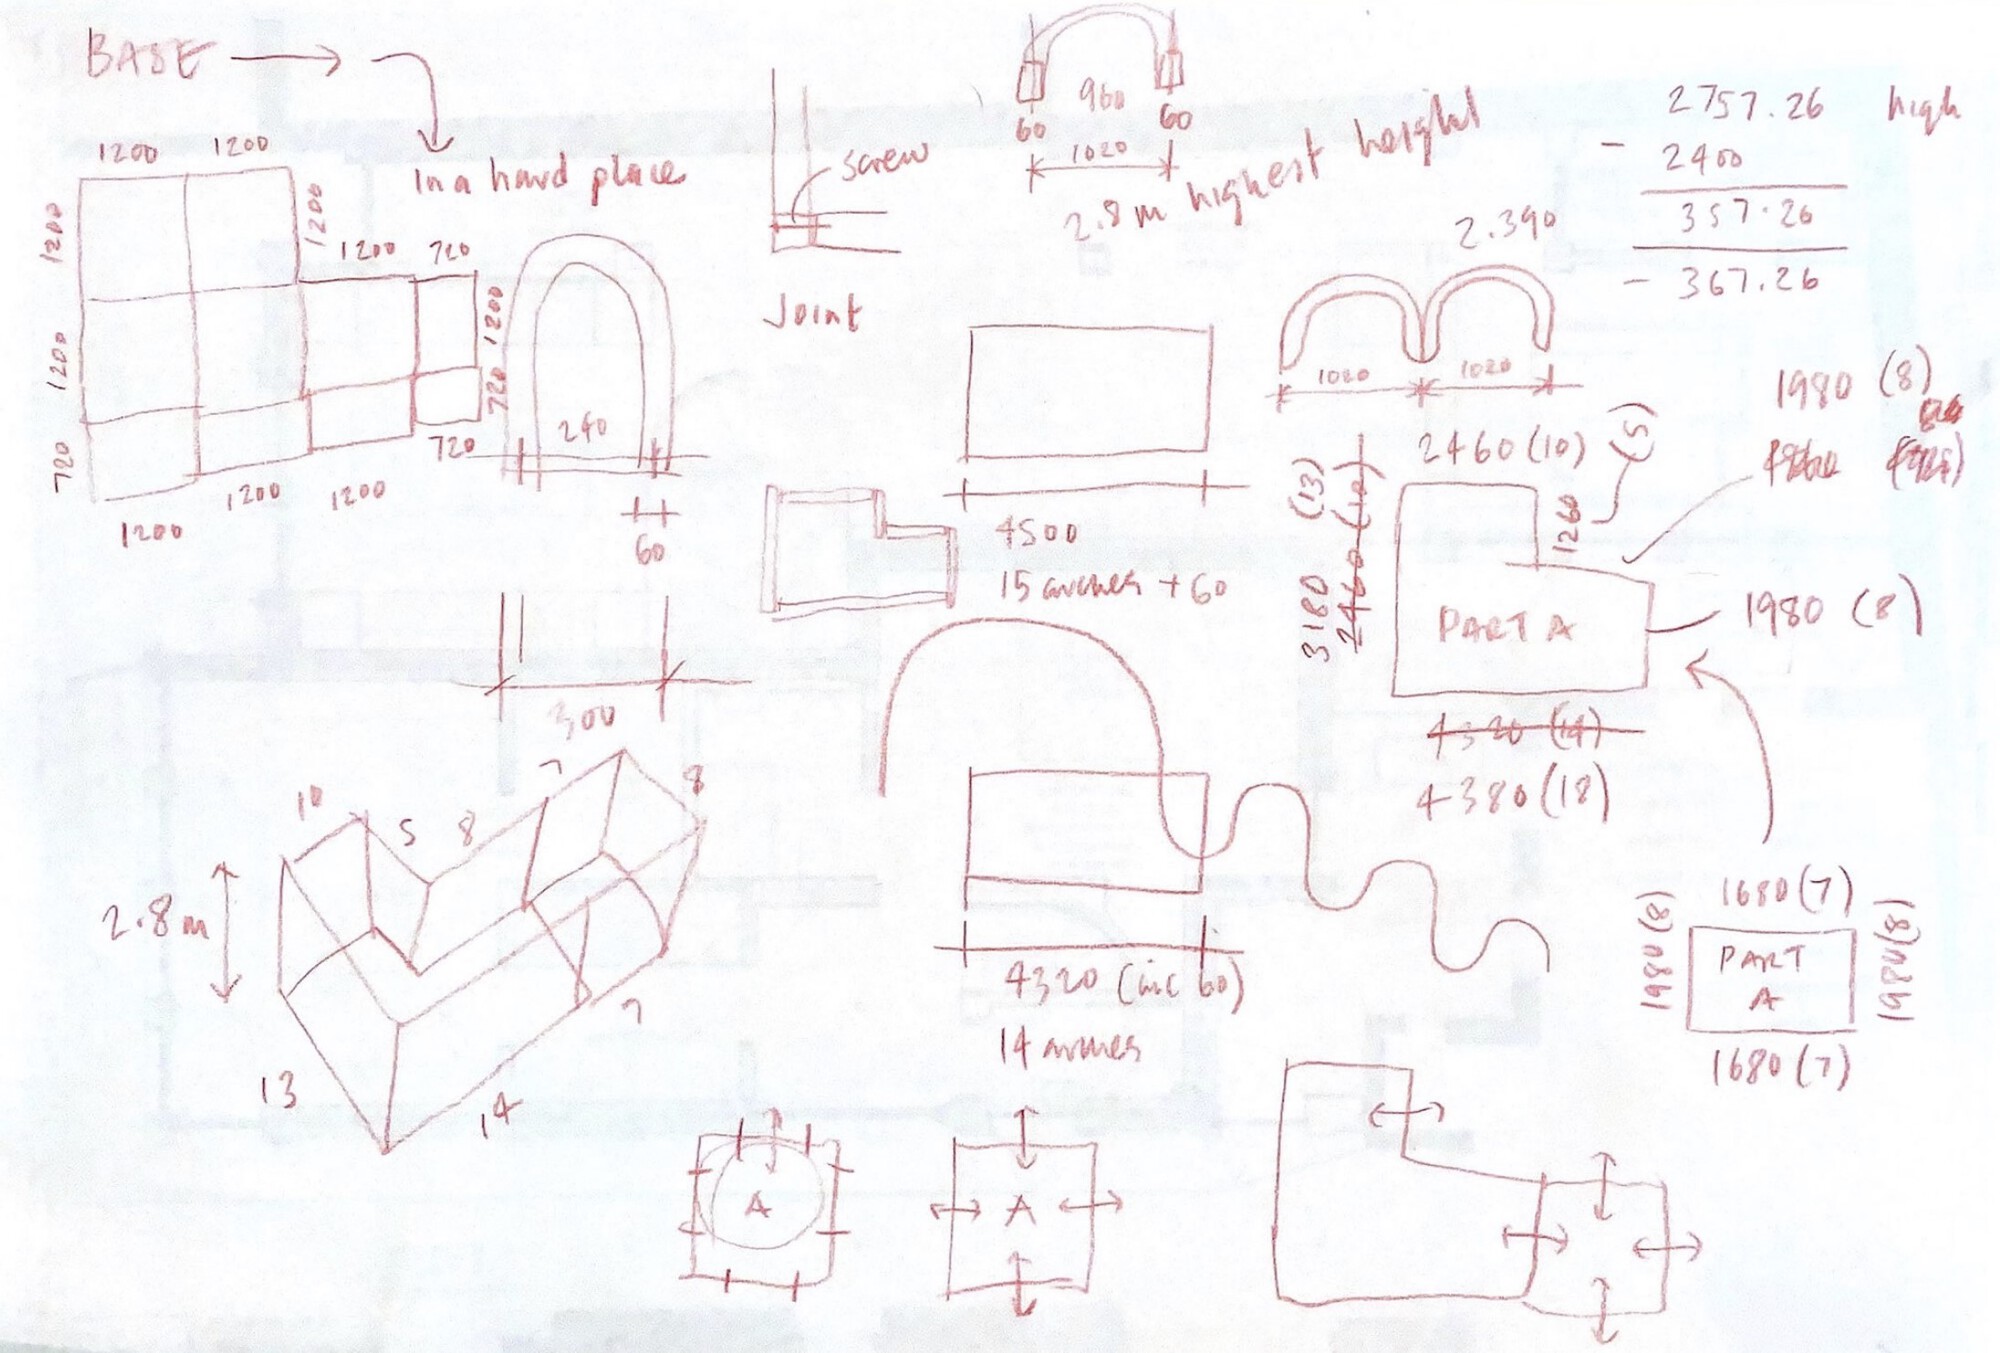 BASE
In a hard place
1200 1200
1200
1200
1200
720
1200
1200 720
1200
720
720
1200 1200
1200
240
60
300
screw
Joint
960
60 60
1020
2.8 m highest height
2757.26 high
- 2400
357.26
- 367.26
2.390
1020 1020
4500
15 arches + 60
2460 (10)
(5)
1260
1980 (8)
3180 (13)
2460 (10)
PART A
1980 (8)
4320 (14)
4380 (18)
1680 (7)
1980 (8)
PART
A
1980 (8)
1680 (7)
4320 (inc 60)
14 arches
2.8 m
10
5
8
7
8
7
14
13
A
A